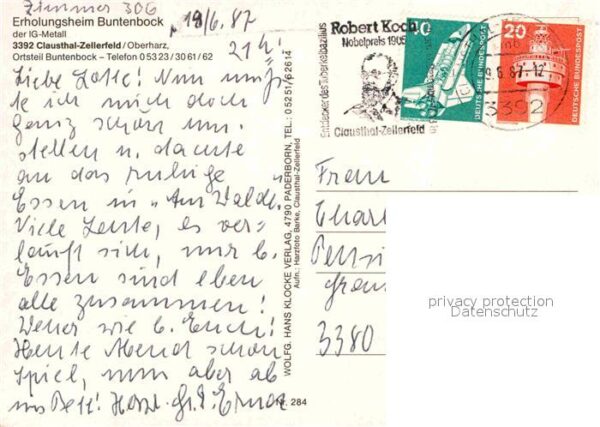 Zimmer 306
Erholungsheim Buntenbock
der IG-Metall
3392 Clausthal-Zellerfeld / Oberharz,
Ortsteil Buntenbock – Telefon 0 53 23 / 30 61 / 62
19/6. 87
21 h!
Liebe Lotte! Nun muß-
te ich mich doch
ganz schön um-
stellen u. dachte
an das ruhige
Essen in "Am Walde".
Viele Leute, es ver-
läuft sich, nur b.
Essen sind eben
alle zusammen!
Wetter wie b. Euch!
Heute Abend schon
Spiel, nun aber ab
ins Bett! Herzl. Gr.
WOLFG. HANS KLOCKE VERLAG, 4790 PADERBORN, TEL.: 0 52 51 / 6 26 14
Aufn.: Harzfoto Barke, Clausthal-Zellerfeld
Nr. 284
Robert Koch
Nobelpreis 1905
Entdecker des Tuberkelbazillus
Clausthal-Zellerfeld
DEUTSCHE BUNDESPOST
20
DEUTSCHE BUNDESPOST
6.87.12
3392
Frau
Pensi
3380
privacy protection
Datenschutz